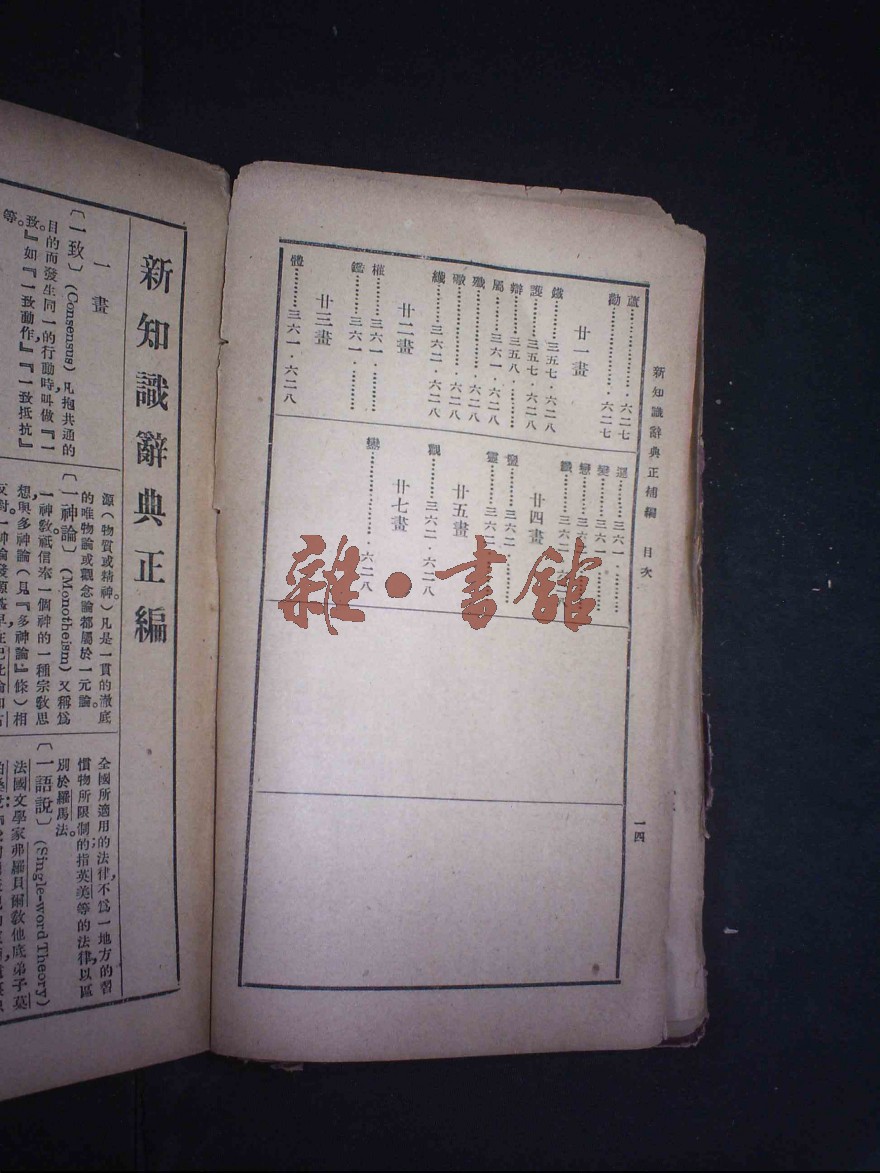 新知識辭典正補編　目次
一四
蘆…………….六二七
勸……………六二七
廿一畫
鐵………三五七.六二八
護………三五七.六二八
辯………三五八.………
屬………三六一.六二八
殲………………六二八
纖………三六二.六二八
廿二畫
權………三六一.………
鑑………三六一.………
廿三畫
體………三六一.六二八
邏………三六一.………
變………三六一.………
戀………三六一
廿四畫
靈………三六二
廿五畫
觀………三六二.六二八
廿七畫
……………六二八
雜·書館
新知識辭典正編
一畫
〔一致〕(Consensus)凡抱共通的
目的而發生同一的行動時，叫做『一
致。』如『一致動作』『一致抵抗』
等。
源(物質或精神)凡是一貫的澈底
的唯物論或觀念論都屬於一元論。
〔一神論〕(Monotheism)又稱爲
一神敎，祇信奉一個神的一種宗敎思
想，與多神論(見『多神論』條)相
全國所適用的法律，不爲一地方的習
慣物所限制的；指英美等的法律，以區
別於羅馬法。
〔一語說〕(Single-word Theory)
法國文學家弗羅貝爾敎他底弟子莫